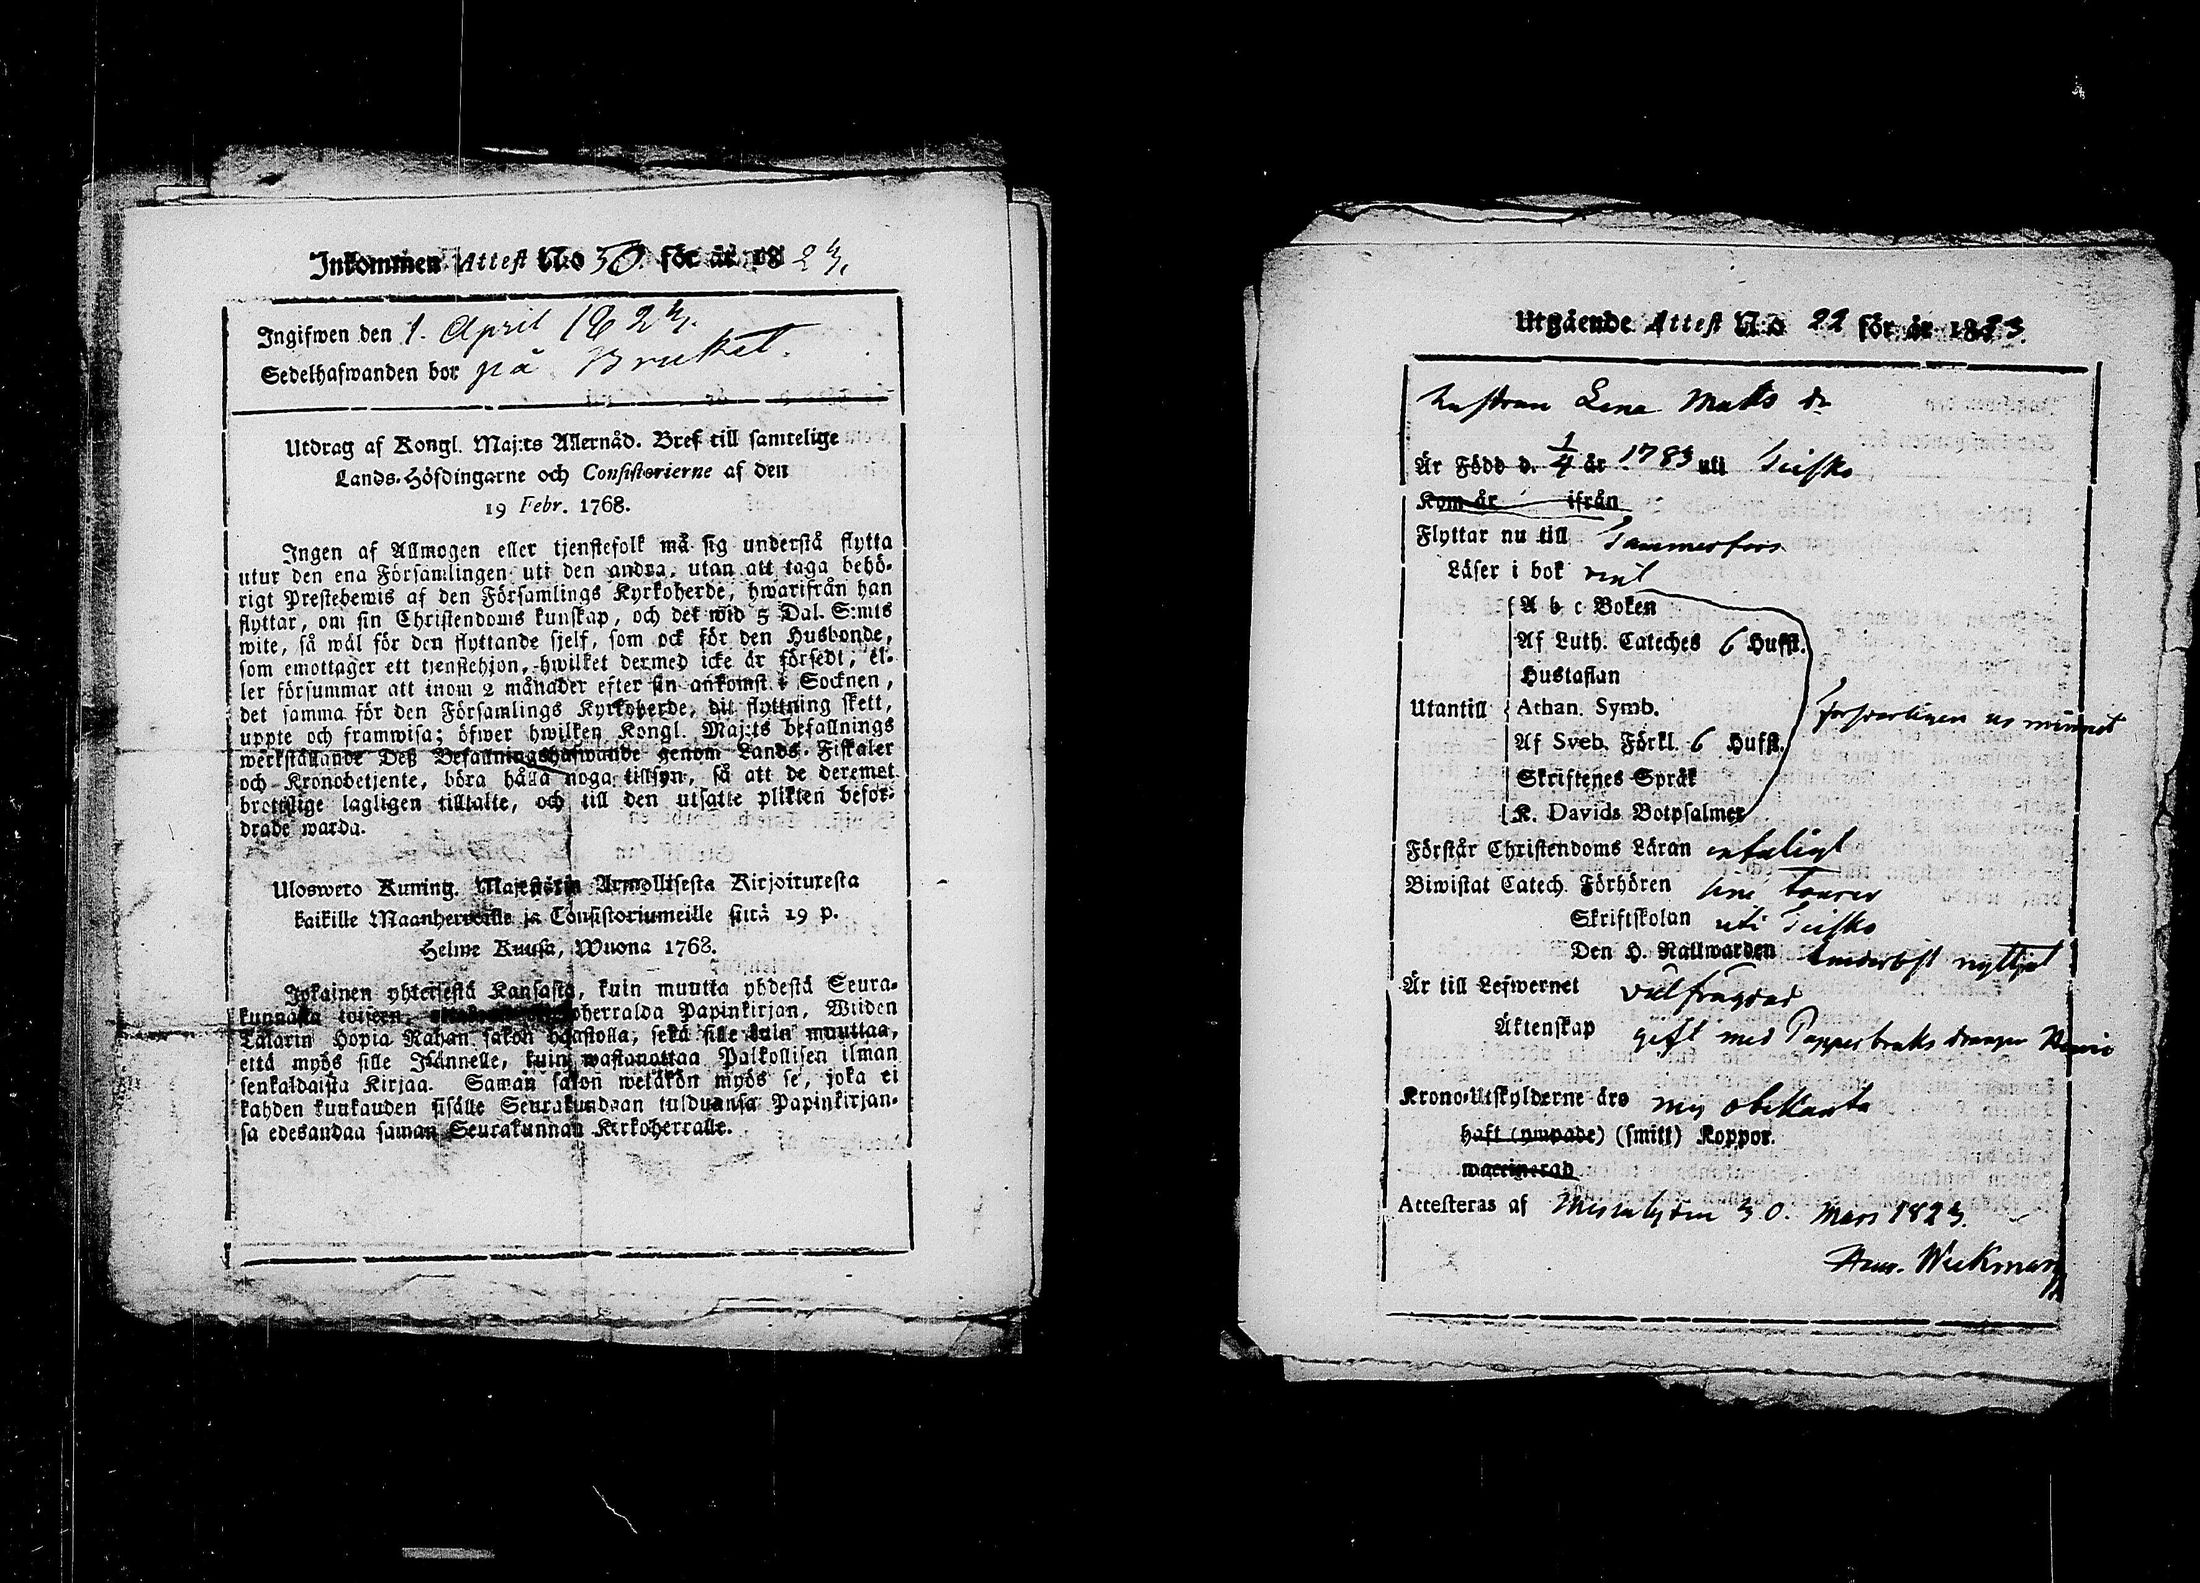 Inkommen Attest N:o 50. för år 1823.
Ingifwen den 1. April 1823.
Sedelhafwanden bor på Bruket.
Utdrag af Kongl. Maj:ts Allernåd. Bref till samtelige
Lands-Höfdingarne och Consistorierne af den
19 Febr. 1768.
Ingen af Allmogen eller tjenstefolk må sig understå flytta
utur den ena Församlingen uti den andra, utan att taga behö-
rigt Prestebewis af den Församlings Kyrkoherde, hwarifrån han
flyttar, om sin Christendoms kunskap, och det wid 5 Dal. S:mts
wite, så wäl för den flyttande sjelf, som ock för den Husbonde,
som emottager ett tjenstehjon, hwilket dermed icke är försedt, el-
ler försummar att inom 2 månader efter sin ankomst i Socknen,
det samma för den Församlings Kyrkoherde, dit flyttning skett,
uppte och framwisa; öfwer hwilken Kongl. Maj:ts befallnings
werkställande Deß Befallningshafwande genom Lands-Fiskaler
och Kronobetjente, böra hålla noga tillsyn, så att de deremet
brottslige lagligen tilltalte, och till den utsatte plikten befor-
drade warda.
Ulosweto Kuning. Majestätin Armollisesta Kirjoituxesta
kaikille Maanherroille ja Consistoriumeille siitä 19 p.
Helme Kuusa, Wuona 1768.
Jokainen yhteisestä Kansasta, kuin muutta yhdestä Seura-
kunnasta toiseen, herralda Papinkirjan, Wiiden
Talarin Hopia Rahan sakon haastolla, sekä sille kuin muuttaa,
että myös sille Isännelle, kuin wastanottaa Palkollisen ilman
senkaldaista Kirjaa. Saman sakon wetäkön myös se, joka ei
kahden kuukauden sisälle Seurakundaan tulduansa Papinkirjan-
sa edesandaa saman Seurakunnan Kirkoherralle.
Utgående Attest N:o 22 för år 1823.
Hustrun Lena Matts dr
Är Född d. 1/4 år 1783 uti Teisko
Kom år ifrån
Flyttar nu till Tammerfors
Läser i bok väl
A b c Boken
Af Luth. Cateches 6 Hufst.
Hustaflan
Utantill Athan. Symb.
försvarligen ur minnet
Af Sveb. Förkl. 6 Hufst.
Skriftenes Språk
K. Davids Botpsalmer
Förstår Christendoms Läran
Biwistat Catech. Förhören
Skriftskolan uti Teisko
Den H. Nattwarden nyttjat
Är till Lefwernet välfrägdad
Äktenskap gift med Pappersbruks drängen
Krono-Utskylderne äro mig obekante
haft (ympade) (smitt) Koppor.
waccinerad
Attesteras af Messuby den 30. Mars 1823.
Wickman